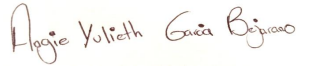 Angie Yulieth Garcia Bejarano